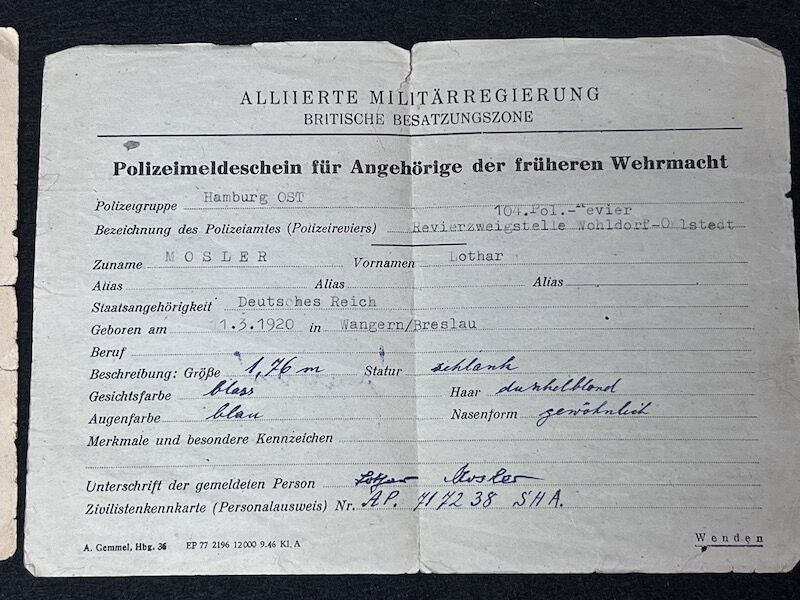 ALLIIERTE MILITÄRREGIERUNG
BRITISCHE BESATZUNGSZONE
Polizeimeldeschein für Angehörige der früheren Wehrmacht
Polizeigruppe Hamburg OST
104.Pol.-Revier
Bezeichnung des Polizeiamtes (Polizeireviers) Revierzweigstelle Wohldorf-Ohlstedt
Zuname MOSLER Vornamen Lothar
Alias Alias Alias
Staatsangehörigkeit Deutsches Reich
Geboren am 1.3.1920 in Wangern/Breslau
Beruf
Beschreibung: Größe 1,76 m Statur schlank
Gesichtsfarbe blass Haar dunkelblond
Augenfarbe blau Nasenform gewöhnlich
Merkmale und besondere Kennzeichen
Unterschrift der gemeldeten Person Lothar Mosler
Zivilistenkennkarte (Personalausweis) Nr. AP. 717238 SHA.
A. Gemmel, Hbg. 36 EP 77 2196 12000 9.46 Kl. A
Wenden